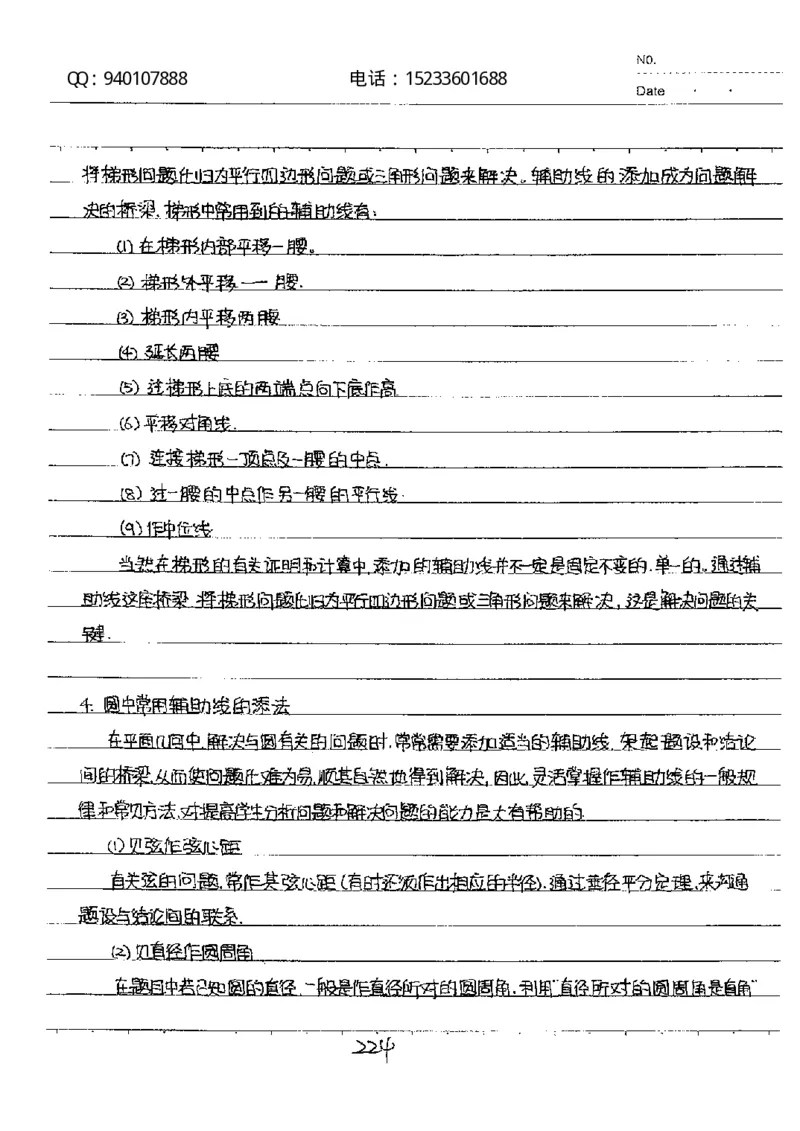 QQ：940107888 电话：15233601688 NO.
Date
将梯形问题化归为平行四边形问题或三角形问题来解决。辅助线的添加成为问题解
决的桥梁,梯形中常用到的辅助线有:
(1) 在梯形内部平移一腰。
(2) 梯形外平移一腰.
(3) 梯形内平移两腰
(4) 延长两腰
(5) 过梯形上底的两端点向下底作高
(6) 平移对角线.
(7) 连接梯形一顶点及一腰的中点.
(8) 过一腰的中点作另一腰的平行线.
(9) 作中位线
当然在梯形的有关证明和计算中,添加的辅助线并不一定是固定不变的.单一的。通过辅
助线这座桥梁,将梯形问题化归为平行四边形问题或三角形问题来解决,这是解决问题的关
键.
4. 圆中常用辅助线的添法
在平面几何中,解决与圆有关的问题时,常常需要添加适当的辅助线,架起题设和结论
间的桥梁,从而使问题化难为易,顺其自然地得到解决,因此,灵活掌握作辅助线的一般规
律和常见方法,对提高学生分析问题和解决问题的能力是大有帮助的.
(1) 见弦作弦心距
有关弦的问题,常作其弦心距(有时还须作出相应的半径).通过垂径平分定理,来沟通
题设与结论间的联系.
(2) 见直径作圆周角
在题目中若已知圆的直径,一般是作直径所对的圆周角,利用"直径所对的圆周角是直角"
224